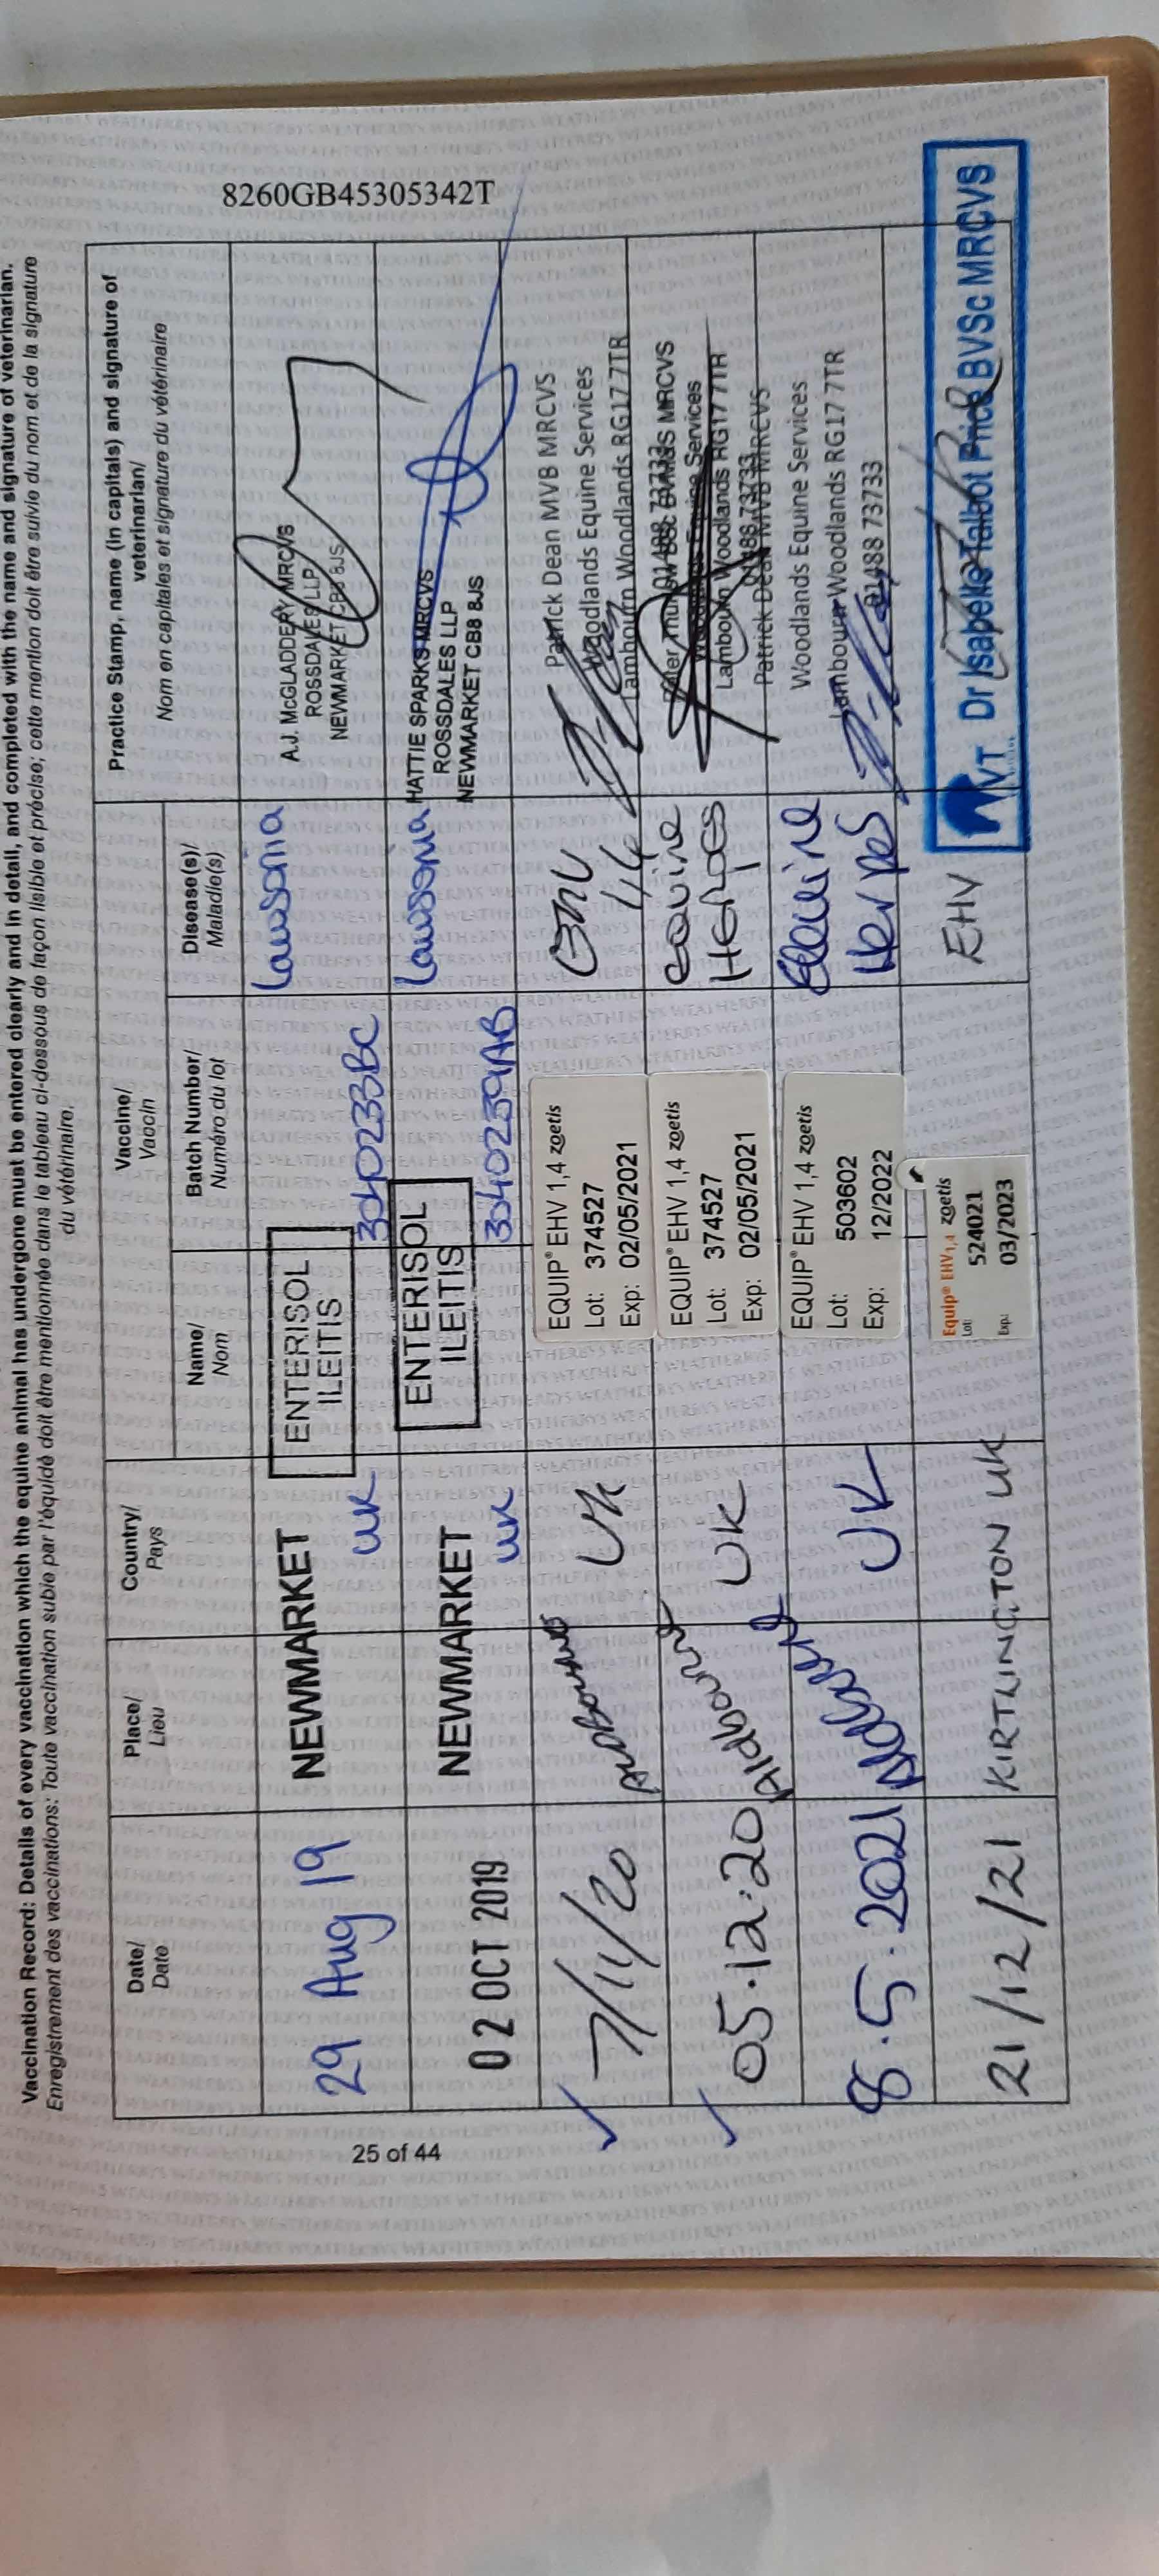 8260GB45305342T
Vaccination Record: Details of every vaccination which the equine animal has undergone must be entered clearly and in detail, and completed with the name and signature of veterinarian.
Enregistrement des vaccinations: Toute vaccination subie par l'équidé doit être mentionnée dans le tableau ci-dessous de façon lisible et précise; cette mention doit être suivie du nom et de la signature
du vétérinaire.
Date/
Date
Place/
Lieu
Country/
Pays
Vaccine/
Vaccin
Name/
Nom
Batch Number/
Numéro du lot
Disease(s)/
Maladie(s)
Practice Stamp, name (in capitals) and signature of
veterinarian/
Nom en capitales et signature du vétérinaire
29 Aug 19
NEWMARKET
UK
ENTERISOL
ILEITIS
3140233BC
Lawsonia
A.J. McGLADDERY MRCVS
ROSSDALES LLP
NEWMARKET CB8 8JS
02 OCT 2019
NEWMARKET
UK
ENTERISOL
ILEITIS
3140259AB
Lawsonia
HATTIE SPARKS MRCVS
ROSSDALES LLP
NEWMARKET CB8 8JS
7/11/20
Aldbourne
UK
EQUIP® EHV 1,4 zoetis
Lot: 374527
Exp: 02/05/2021
EHV
1/4
Patrick Dean MVB MRCVS
Woodlands Equine Services
Lambourn Woodlands RG17 7TR
01488 73733
05.12.20
Aldbourne
UK
EQUIP® EHV 1,4 zoetis
Lot: 374527
Exp: 02/05/2021
Equine
Herpes
BVMS MRCVS
Woodlands Equine Services
Lambourn Woodlands RG17 7TR
01488 73733
8.5.2021
Aldbourne
UK
EQUIP® EHV 1,4 zoetis
Lot: 503602
Exp: 12/2022
Equine
Herpes
Patrick Dean MVB MRCVS
Woodlands Equine Services
Lambourn Woodlands RG17 7TR
01488 73733
21/12/21
KIRTLINGTON
UK
Equip® EHV1,4 zoetis
Lot: 524021
Exp.: 03/2023
EHV
VT
Dr Isabelle Talbot Price BVSc MRCVS
25 of 44